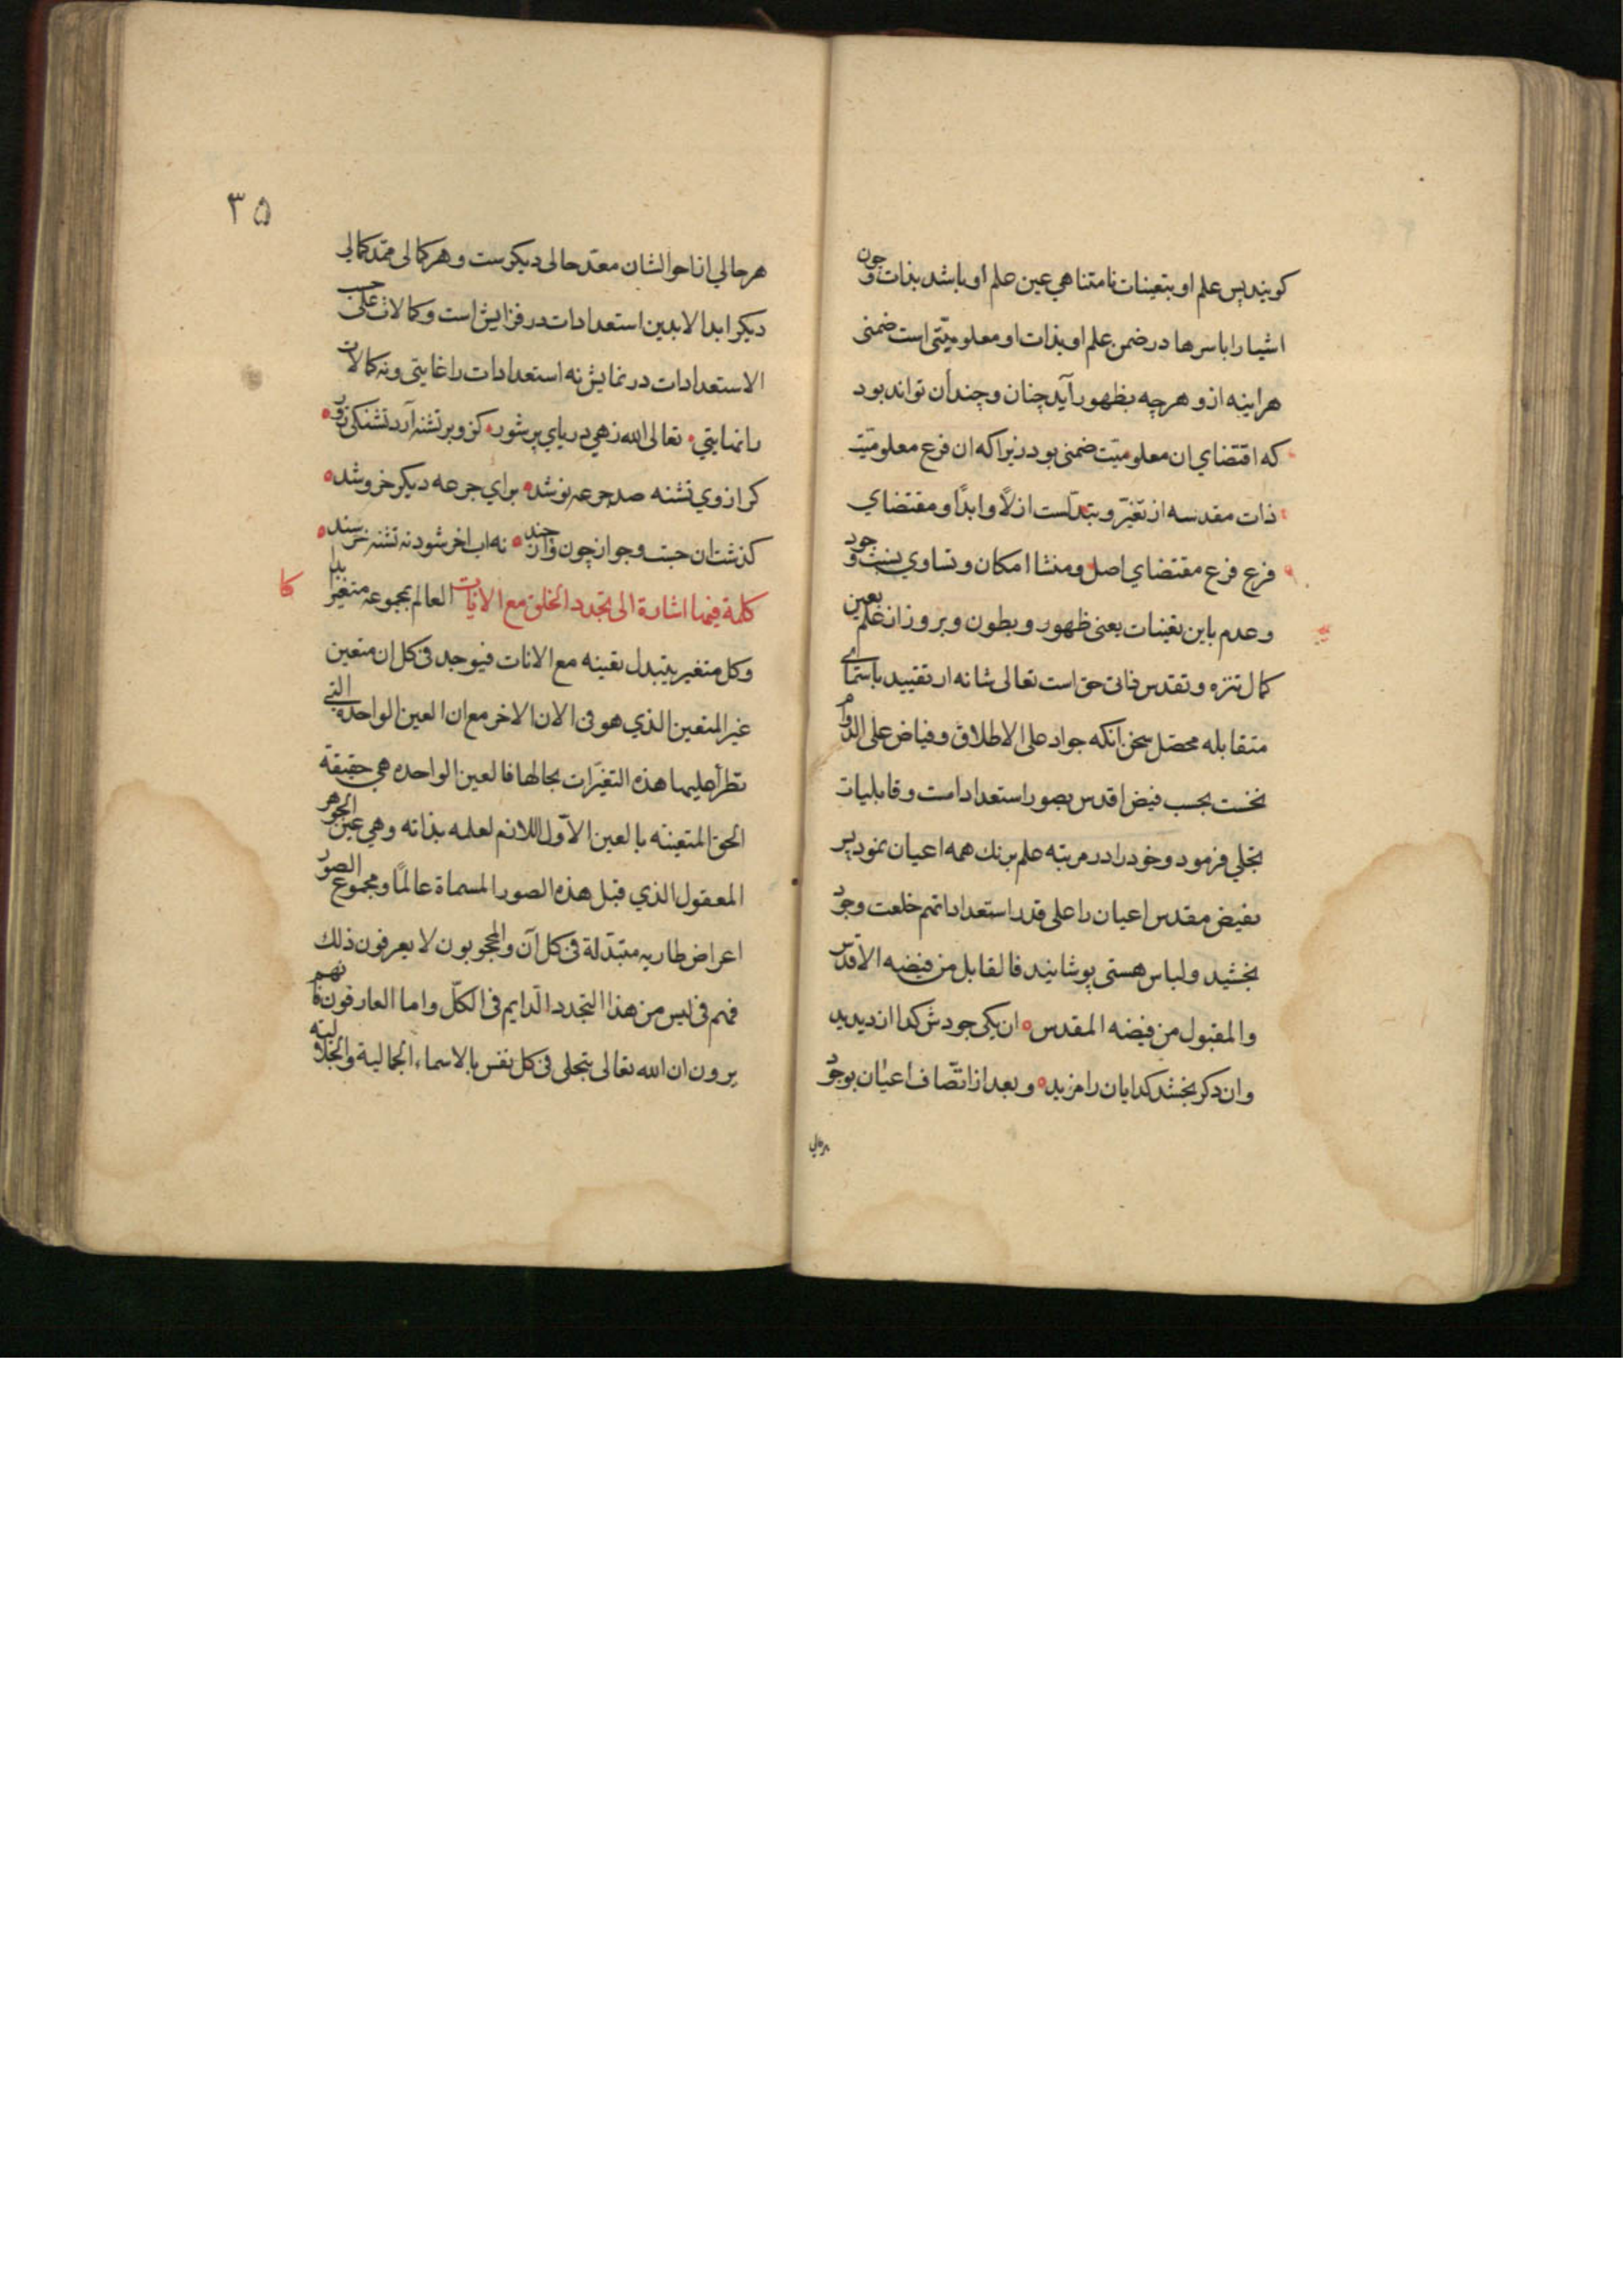 كويند پس علم او بتعينات نامتناهي عين علم او باشد بذات و چون
اشيا را باسرها در ضمن علم او بذات او معلوميّتى است ضمنى
هراينه ازو هرچه بظهور آيد چنان و چندان تواند بود
كه اقتضاي ان معلوميّت ضمنى بود زيرا كه ان فرع معلوميّت
ذات مقدسه از تغيّر و تبدّلست ازلًا و ابدًا و مقتضاي
فرع فرع مقتضاي اصل و منشا امكان و تساوي نسبت وجود
و عدم باين تعينات يعنى ظهور و بطون و بروز از علم بعين
كمال تنزه و تقدس ذاتى حق است تعالى شانه از تقييد باسماى
متقابله محصّل سخن انكه جواد على الاطلاق و فياض على الدوام
نخست بحسب فيض اقدس بصور استعدادات و قابليات
تجلي فرمود و خود را در مرتبه علم برنك همه اعيان نمود پس
بفيض مقدس اعيان را على قدر استعداداتهم خلعت وجود
بخشيد و لباس هستى پوشانيد فالقابل من فيضه الاقدس
والمقبول من فيضه المقدس ان يكى جودش كدا ارد پديد
وان دكر بخشد كدايان را مزيد و بعد از اتّصاف اعيان بوجود
هرحالي
٣٥
هر حالي از احوالشان معدّ حالى ديكرست و هر كمالى ممدّ كمالى
ديكر ابدالابدين استعدادات در فزايش است و كمالات على حسب
الاستعدادات در نمايش نه استعدادات را غايتى و نه كمالات
را نهايتي تعالى الله زهي درياي پر شور كزو بر تشنه آرد تشنكى زور
كر از وي تشنه صد جرعه نوشد براي جرعه ديكر خروشد
كذشت ان جست و جو از چون و از چند نه اب اخر شود نه تشنه خرسند
كلمة فيها اشارة الى تجدد الخلق مع الانات العالم بمجموعه متغير ابدا
كا
وكل متغير يتبدل تعينه مع الانات فيوجد فى كل ان متعين
غير المتعين الذي هو فى الان الاخر مع ان العين الواحدة التي
تطرأ عليها هذه التغيّرات بحالها فالعين الواحده هي حقيقة
الحق المتعينه بالعين الاوّل اللازم لعلمه بذاته وهي عين الجوهر
المعقول الذي قبل هذه الصور المسماة عالمًا ومجموع الصور
اعراض طاريه متبدّلة فى كل آن والمحجوبون لا يعرفون ذلك
فهم فى لبس من هذا التجدد الدايم فى الكلّ واما العارفون فانهم
يرون ان الله تعالى يتجلى فى كل نفس بالاسماء الجمالية والجلالية